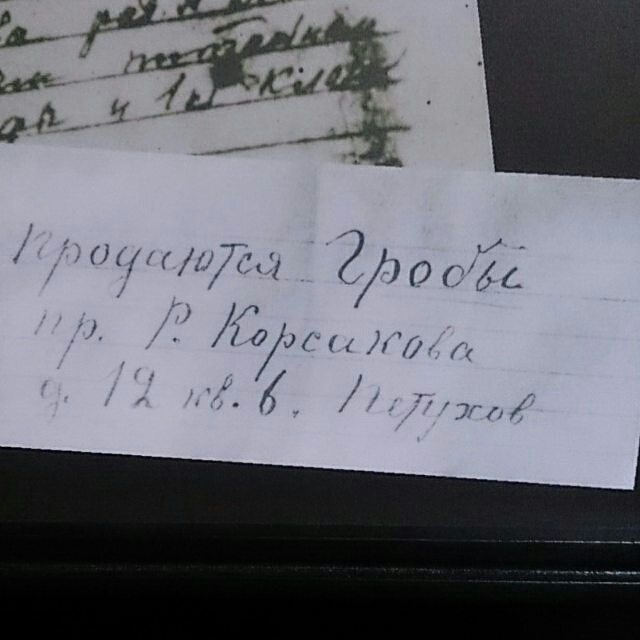 и 1 кл
Продаются Гробы
пр. Р. Корсакова
д. 12 кв. 6. Петухов